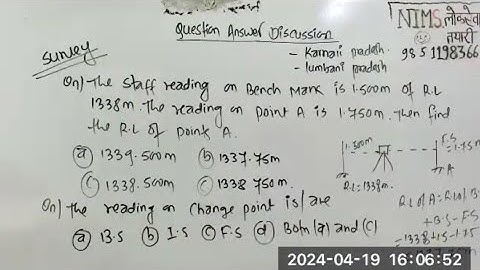 Question Answer Discussion
NIMS. लोकसेवा
तयारी
- Karnali pradesh.
- lumbani pradesh
9851198366
Survey
Qn) The Staff reading on Bench Mark is 1.500m of R.L
1338m. The reading on point A is 1.750m. Then find
the R.L of points A.
(a) 1339.500m (b) 1337.750m
(c) 1338.500m (c) 1338.750m.
1.500m
F.S
= 1.75m
A
R.L=1338m
Qn) The reading on Change point is/are
(a) B.S (b) I.S (c) F.S (d) Both (a) and (c)
R.L of A = R.L of B
+ B.S - F.S
= 1338+1.5-1.75
2024-04-19 16:06:52